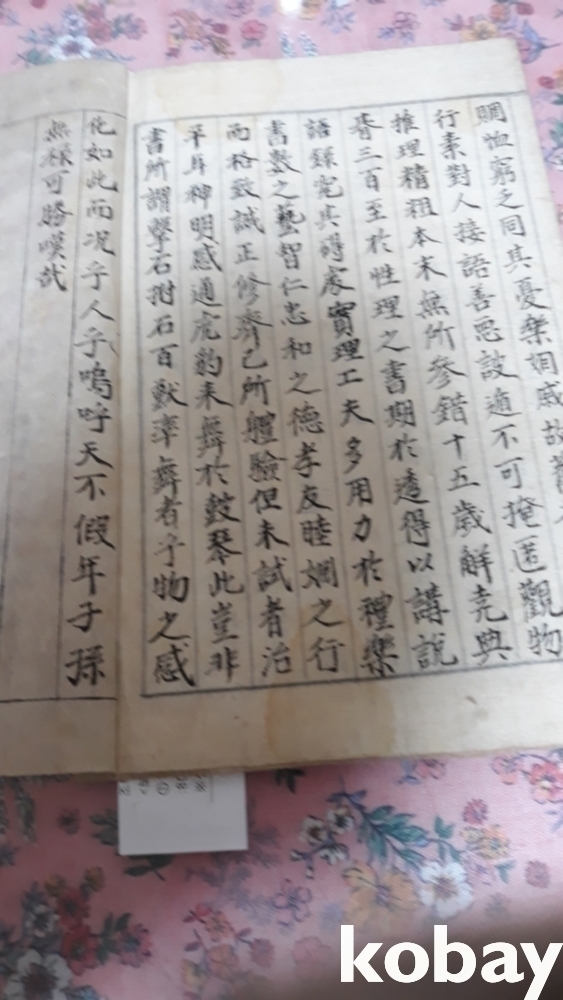 賙恤窮乏同其憂樂姻戚故舊
行素對人接語善惡設適不可掩匿觀物
推理精粗本末無所參錯十五歲解堯典
朞三百至於性理之書期於透得以講說
語錄究其碍處實理工夫多用力於禮樂
書數之藝智仁忠和之德孝友睦婣之行
而格致誠正修齊己所體驗但未試者治
平耳神明感通虎豹来舞於鼓琴此豈非
書所謂擊石拊石百獸率舞者乎物之感
化如此而况乎人乎嗚呼天不假年子孫
無祿可勝嘆哉
kobay